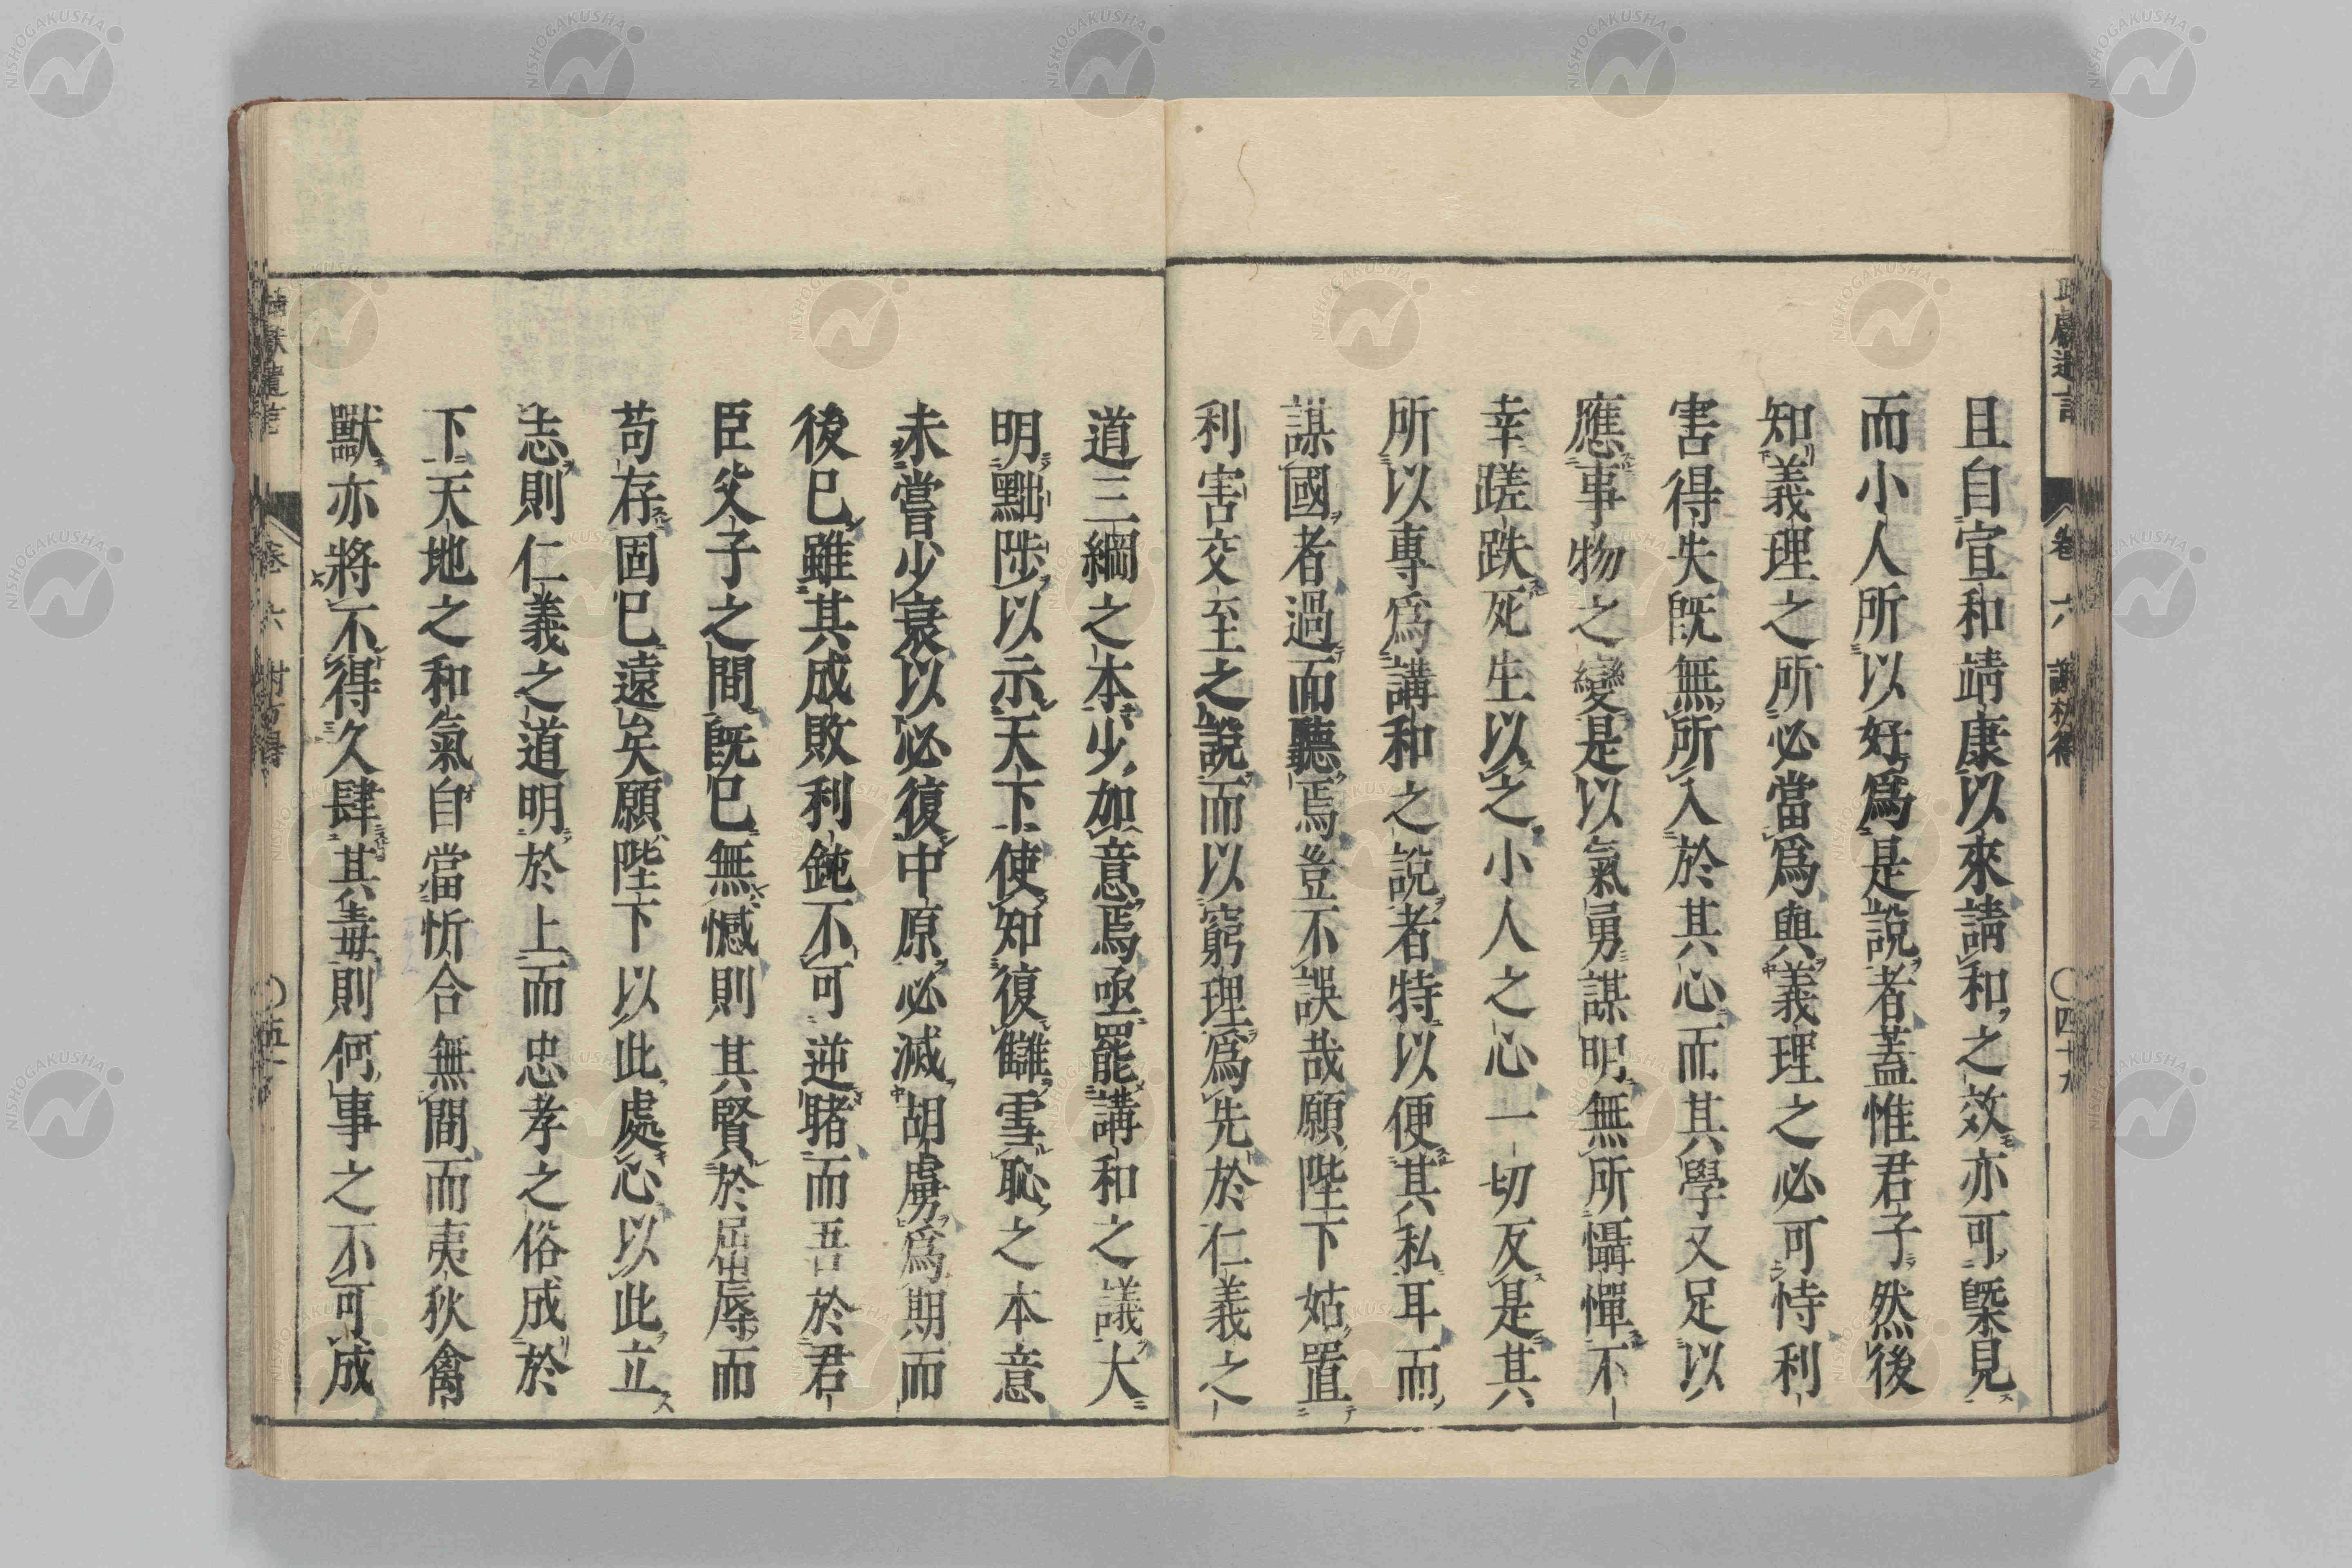 且自宣和靖康以來請和之效亦可槩見
而小人所以好爲是說者蓋惟君子然後
知義理之所必當爲與義理之必可恃利
害得失既無所入於其心而其學又足以
應事物之變是以氣勇謀明無所懾憚不
幸蹉跌死生以之小人之心一切反是其
所以專爲講和之說者特以便其私耳而
謀國者過而聽焉豈不誤哉願陛下姑置
利害交至之說而以窮理爲先於仁義之
道三綱之本少加意焉亟罷講和之議大
明黜陟以示天下使知復讎雪恥之本意
未嘗少衰以必復中原必滅胡虜爲期而
後已雖其成敗利鈍不可逆睹而吾於君
臣父子之間既已無憾則其賢於屈辱而
苟存固已遠矣願陛下以此處心以此立
志則仁義之道明於上而忠孝之俗成於
下天地之和氣自當忻合無間而夷狄禽
獸亦將不得久肆其毒則何事之不可成
卷六 謝枋得 〇四十九
靖獻遺言 卷六 謝枋得 〇五十
NISHOGAKUSHA